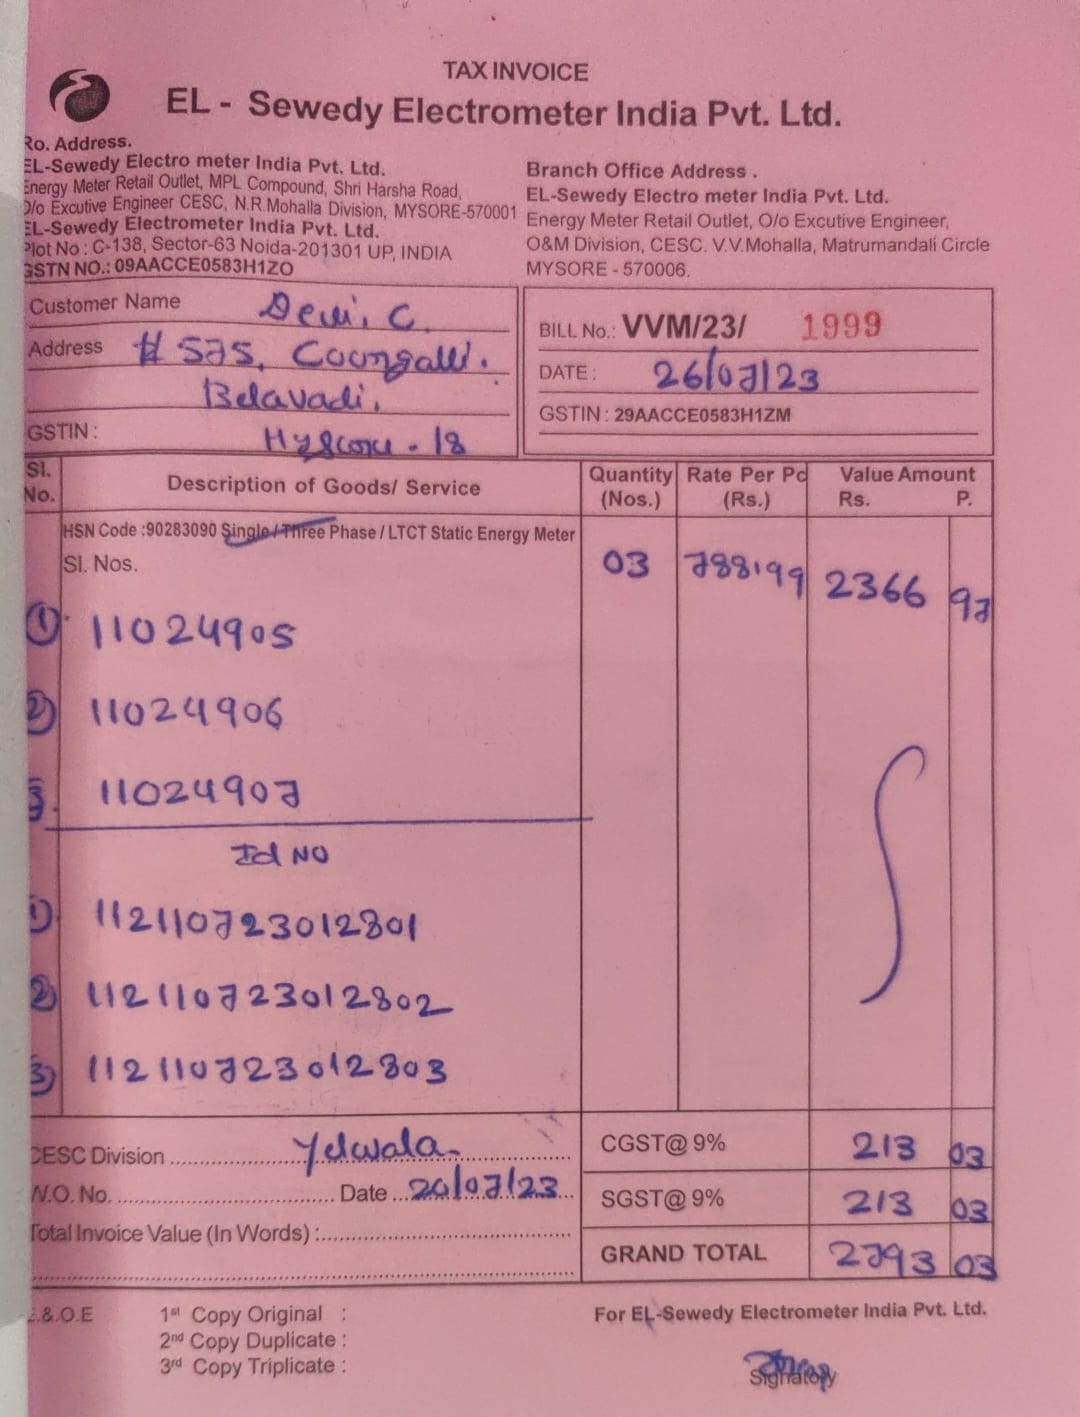 TAX INVOICE
EL - Sewedy Electrometer India Pvt. Ltd.
Ro. Address.
EL-Sewedy Electro meter India Pvt. Ltd.
Energy Meter Retail Outlet, MPL Compound, Shri Harsha Road,
O/o Excutive Engineer CESC, N.R.Mohalla Division, MYSORE-570001
EL-Sewedy Electrometer India Pvt. Ltd.
Plot No : C-138, Sector-63 Noida-201301 UP, INDIA
GSTN NO.: 09AACCE0583H1ZO
Branch Office Address .
EL-Sewedy Electro meter India Pvt. Ltd.
Energy Meter Retail Outlet, O/o Excutive Engineer,
O&M Division, CESC. V.V.Mohalla, Matrumandali Circle
MYSORE - 570006.
Customer Name Devi. C.
Address # 575, Coorgalli.
Belavadi.
GSTIN : Mysore - 18
BILL No.: VVM/23/ 1999
DATE : 26/07/23
GSTIN : 29AACCE0583H1ZM
Sl. No. Description of Goods/ Service Quantity (Nos.) Rate Per Pc (Rs.) Value Amount Rs. P.
HSN Code :90283090 Single / Three Phase / LTCT Static Energy Meter
Sl. Nos. 03 788.99 2366 97
① 11024905
② 11024906
3. 11024907
Id NO
① 112110723012801
② 112110723012802
③ 112110723012803
CESC Division Yelwala
W.O. No. Date 26/07/23
Total Invoice Value (In Words) :
CGST@ 9% 213 03
SGST@ 9% 213 03
GRAND TOTAL 2793 03
E.&.O.E
1st Copy Original :
2nd Copy Duplicate :
3rd Copy Triplicate :
For EL-Sewedy Electrometer India Pvt. Ltd.
Signatory